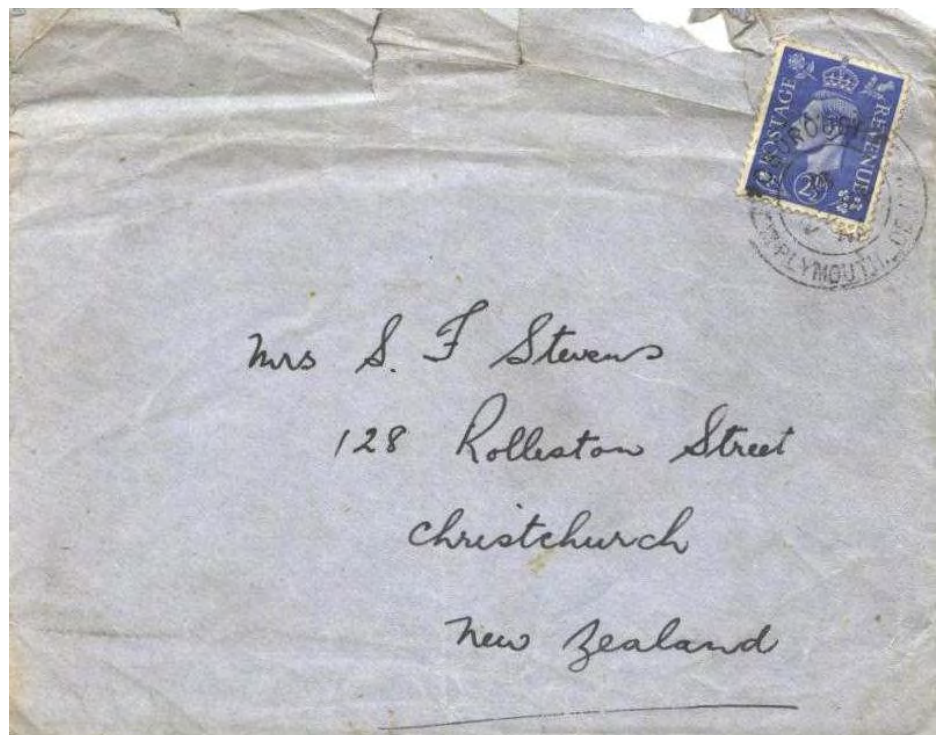 POSTAGE REVENUE
2½
PLYMOUTH.
Mrs S. F Stevens
128 Rolleston Street
Christchurch
New Zealand